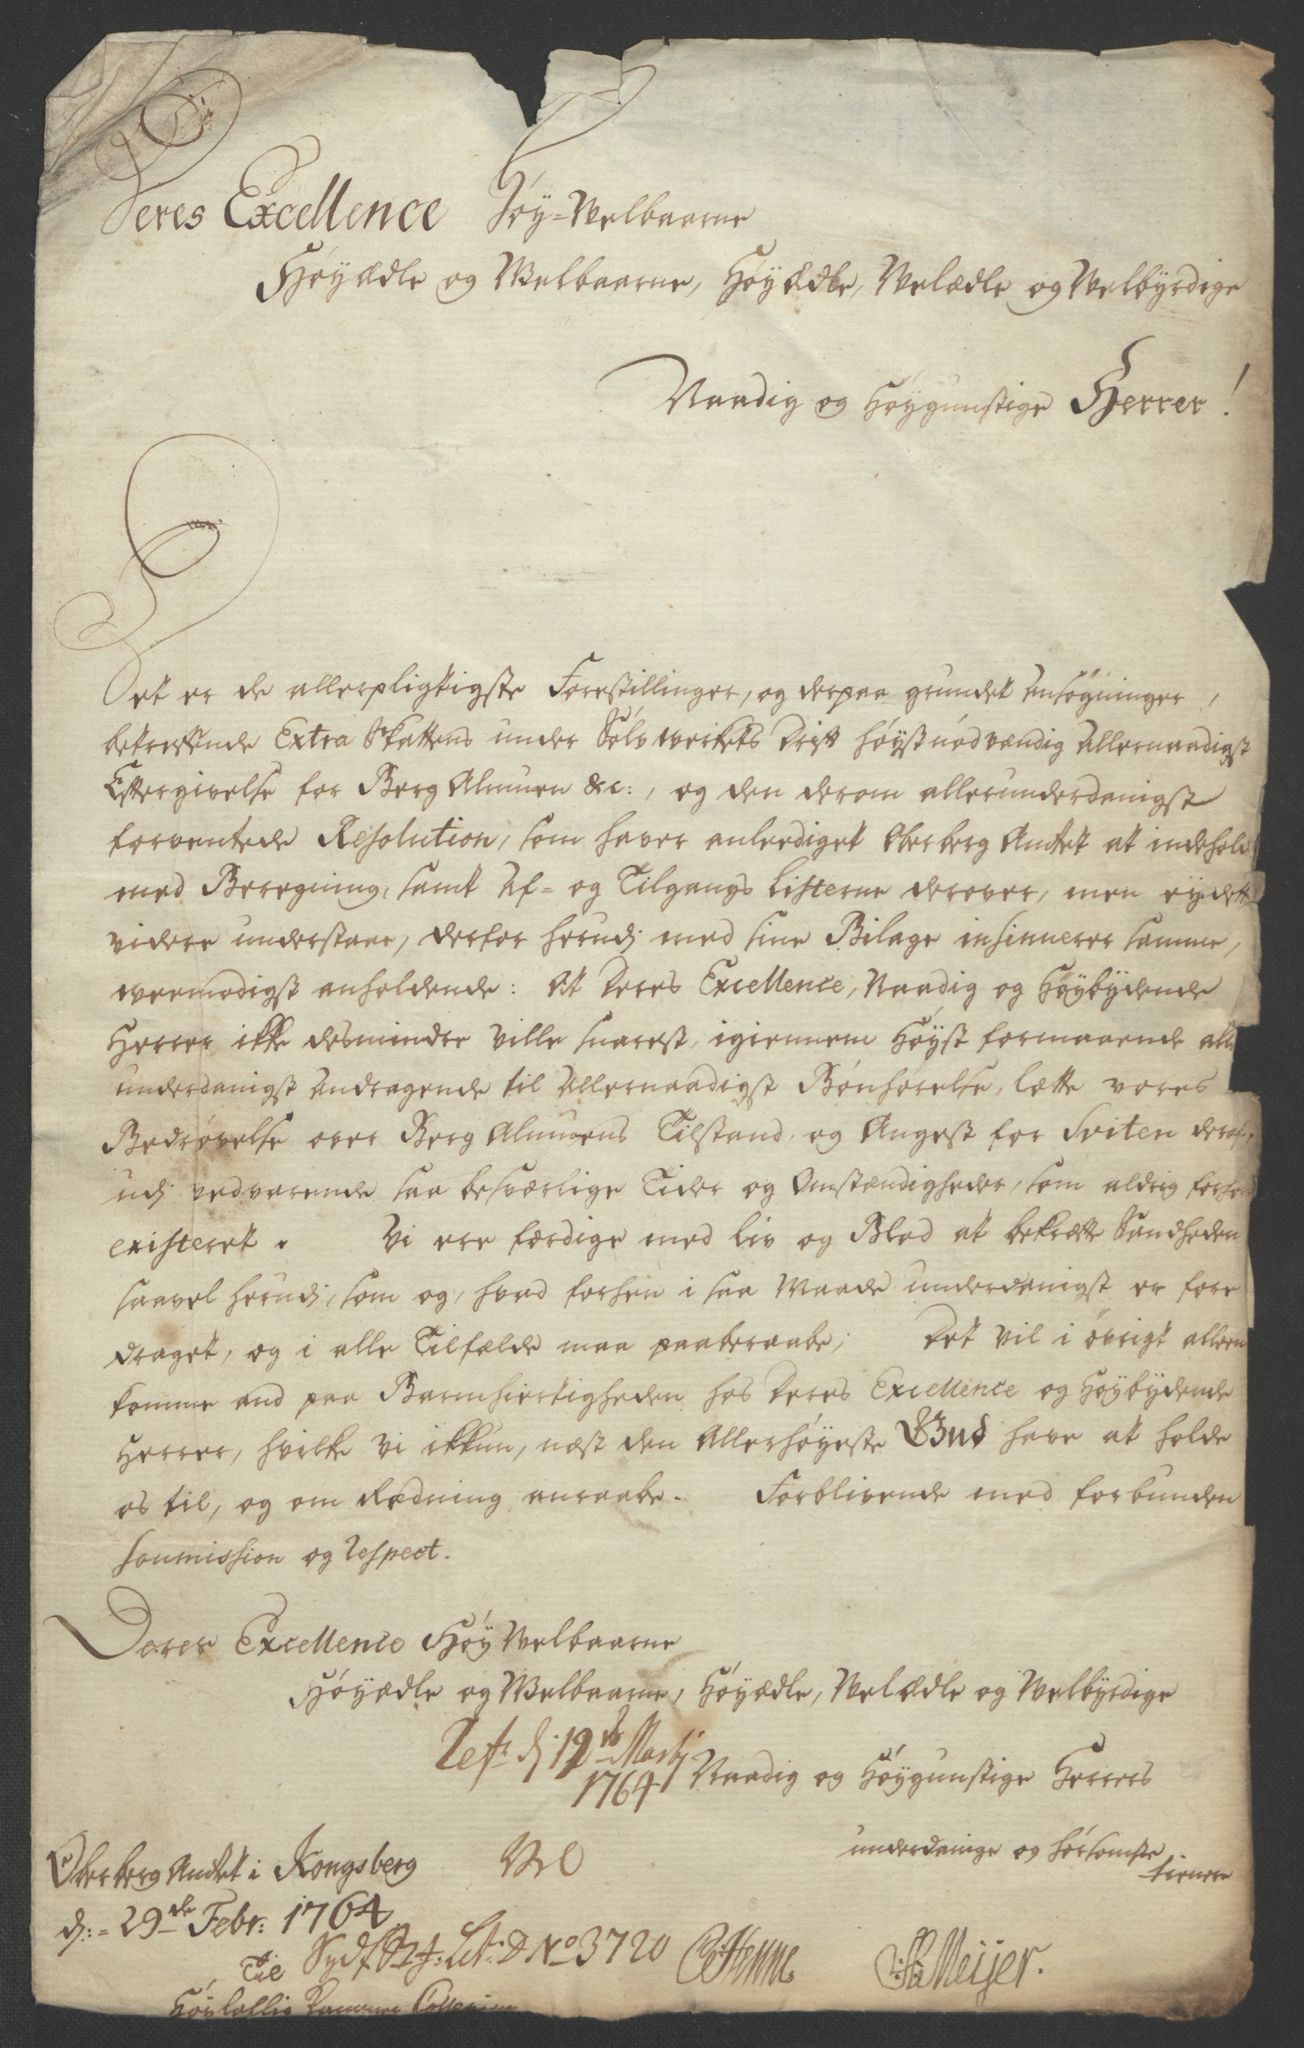 Deres Excellence Høy-Welbaarne
Høyædle og Welbaarne, Høyædle, Velædle og Velbyrdige
Naadig og Høygunstige Herrer!
Det er de allerpligtigste Forestillinger, og derpaa grundet Ansøgninger,
betreffende Extra Skattens under Sølvwerkets Drift høystnødvændig Allernaadigst
Eftergivelse for Berg Almuen &c:, og den derom allerunderdanigst
forventede Resolution, som haver anlediget Oberberg Amtet at indehold
med Beregning, samt Af- og Tilgangs Listerne derover, men ey dette
videre understaae, derfor herudj med sine Bilage insinuerer samme,
weemodigst anholdende: At Deres Excellence, Naadig og Høybydende
Herrer ikke desmindre ville snarest, igiennem Høyst formaaende alle
underdanigst Andragende til Allernaadigst Bønhørelse, lætte vores
Bedrøvelse over Berg Almuens Tilstand, og Angest for Sviten deraf,
udj vedvarende saa besværlige Tider og Omstændigheder, som aldrig forhen
existeret. Vi ere færdige med Liv og Blod at bekræfte Sandheden
saavel herudj, som og, hvad forhen i saa Maade underdanigst er fore
draget, og i alle Tilfælde maa paaberaabe; Det vil i øvrigt alleene
komme and paa Barmhiertigheden hos Deres Excellence og Høybydende
Herrer, hvilke Vi ikkun, næst den Allerhøyeste Gud have at holde
os til, og om Redning anraabe. Forblivende med forbunden
Soumission og Respect.
Deres Excellence Høy Velbaarne
Høyædle og Welbaarne, Høyædle, Velædle og Velbyrdige
Naadig og Høygunstige Herrers
underdanige og hørsomste
tienere
Ober berg Amtet i Kongsberg
dj: 29de Febr: 1764
12te Martj
1764
Lit: D No 3720
Til
Høylovlig Cammer Collegium
Meijer.